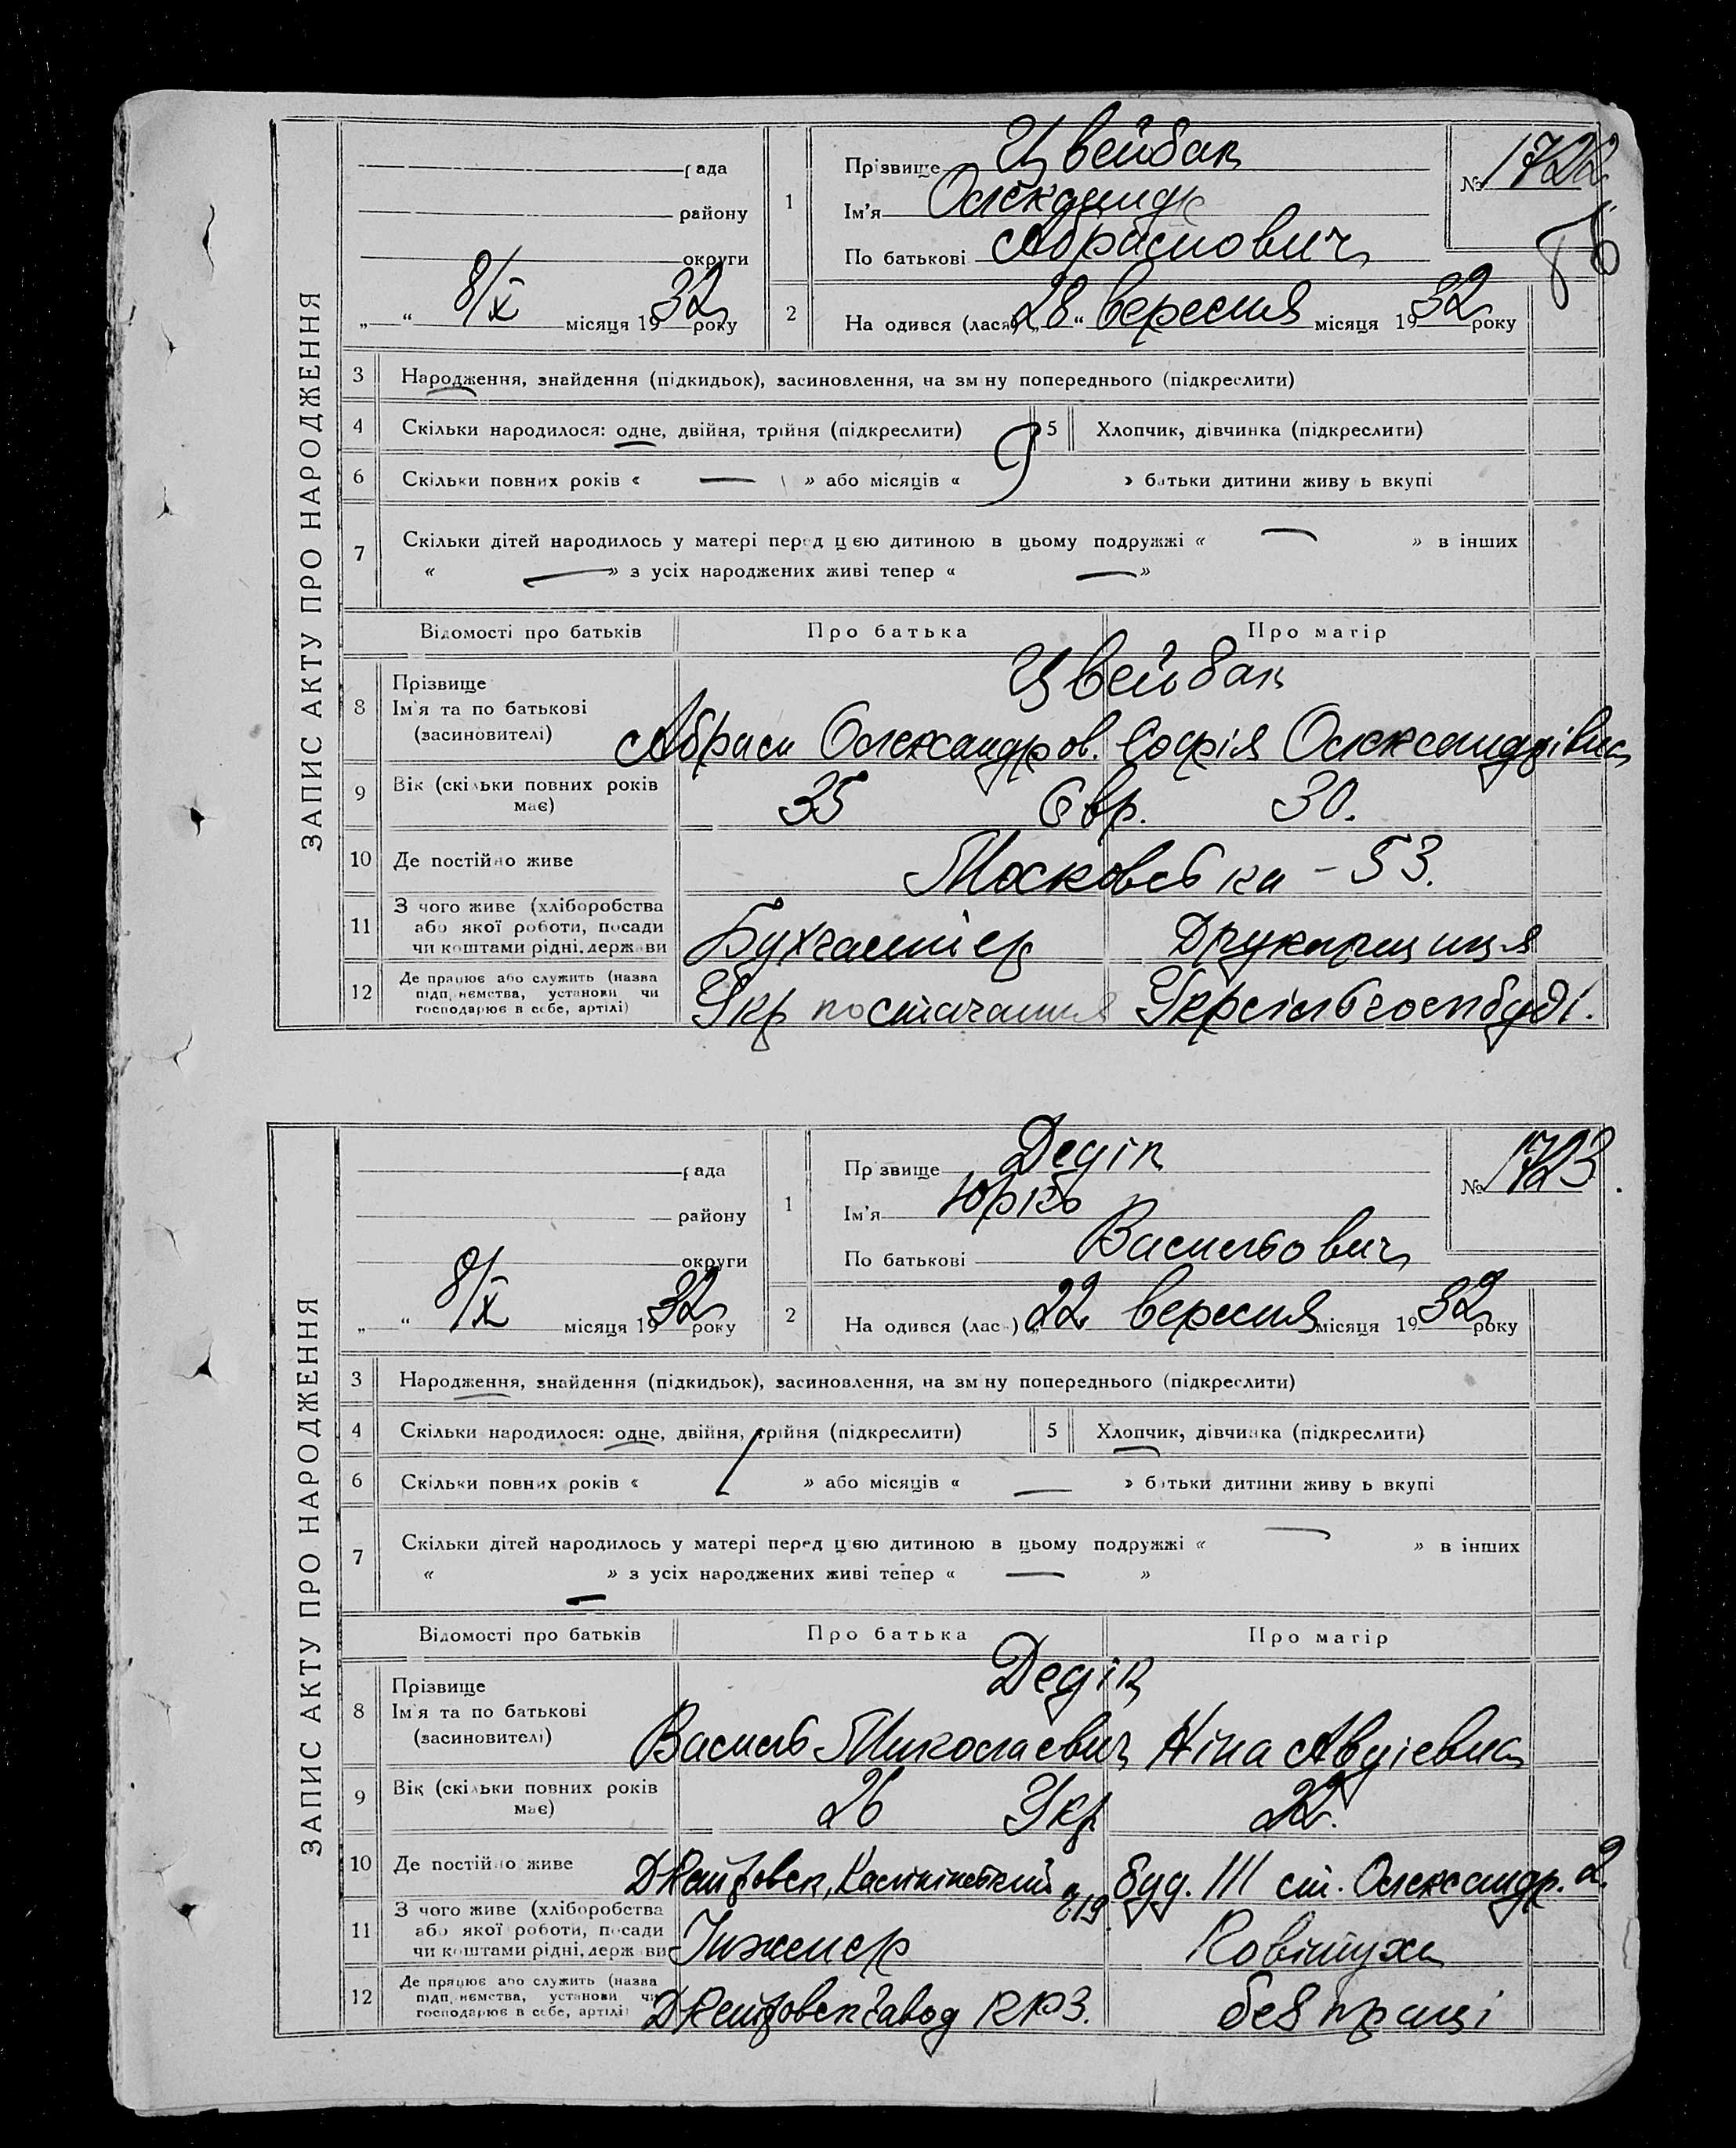 ЗАПИС АКТУ ПРО НАРОДЖЕННЯ
рада
району
округи
„ “ 8/X місяця 1932 року
1 Прізвище Цвейбак
Ім'я Олександр
По батькові Абрамович
№ 1722
2 На одився (лася) „28“ вересня місяця 1932 року
3 Народження, знайдення (підкидьок), засиновлення, на зм ну попереднього (підкреслити)
4 Скільки народилося: одне, двійня, трійня (підкреслити) 5 Хлопчик, дівчинка (підкреслити)
6 Скільки повних років « — » або місяців « 9 » батьки дитини живу ь вкупі
7 Скільки дітей народилось у матері перед цією дитиною в цьому подружжі « — » в інших
« — » з усіх народжених живі тепер « — »
Відомості про батьків Про батька Про матір
8 Прізвище
Ім'я та по батькові
(засиновителі)
Цвейбак
Абрам Олександров. Софія Олександрівна
9 Вік (скільки повних років
має)
35 Євр. 30.
10 Де постійно живе Московська - 53.
11 З чого живе (хліборобства
або якої роботи, посади
чи коштами рідні, держави
Бухгалтер Друкарщиця
12 Де працює або служить (назва
підп иємства, установи чи
господарює в себе, артілі)
Укрпостачання Укрсільгоспбуді.
ЗАПИС АКТУ ПРО НАРОДЖЕННЯ
рада
району
округи
„ “ 8/X місяця 1932 року
1 Пр звище Дедік
Ім'я Юрко
По батькові Васильович
№ 1723.
2 На одився (лас ) „22 вересня місяця 1932 року
3 Народження, знайдення (підкидьок), засиновлення, на зм ну попереднього (підкреслити)
4 Скільки народилося: одне, двійня, трійня (підкреслити) 5 Хлопчик, дівчинка (підкреслити)
6 Скільки повних років « 1 » або місяців « — » батьки дитини живу ь вкупі
7 Скільки дітей народилось у матері перед цією дитиною в цьому подружжі « — » в інших
« — » з усіх народжених живі тепер « — »
Відомості про батьків Про батька Про матір
8 Прізвище
Ім'я та по батькові
(засиновителі)
Дедік
Василь Миколаевич Ніна Авдіевна
9 Вік (скільки повних років
має)
26 Укр 22.
10 Де постійно живе буд. 111 ст. Олександр. 2.
11 З чого живе (хліборобства
або якої роботи, посади
чи коштами рідні, держави
Інженер Повітуха
12 Де працює або служить (назва
підп иємства, установи чи
господарює в себе, артілі)
завод без праці